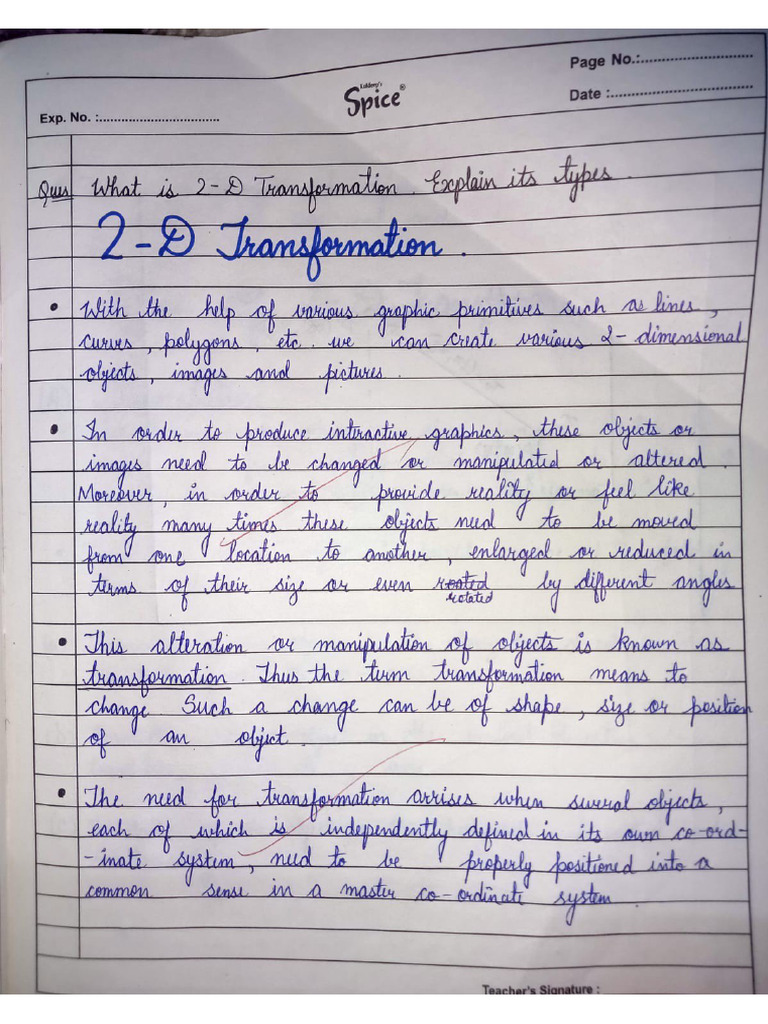 Page No.:............................
Lukberg's
Spice®
Date :..................................
Exp. No. :.................................
Ques What is 2-D Transformation. Explain its types.
2-D Transformation.
• With the help of various graphic primitives such as lines,
curves, polygons, etc. we can create various 2-dimensional
objects, images and pictures.
• In order to produce interactive graphics, these objects or
images need to be changed or manipulated or altered.
Moreover, in order to provide reality or feel like
reality many times these objects need to be moved
from one location to another, enlarged or reduced in
terms of their size or even rotated by different angles
• This alteration or manipulation of objects is known as
transformation. Thus the term transformation means to
change Such a change can be of shape, size or position
of an object.
• The need for transformation arrises when several objects,
each of which is independently defined in its own co-ord-
-inate system, need to be properly positioned into a
common sense in a master co-ordinate system.
Teacher's Signature :